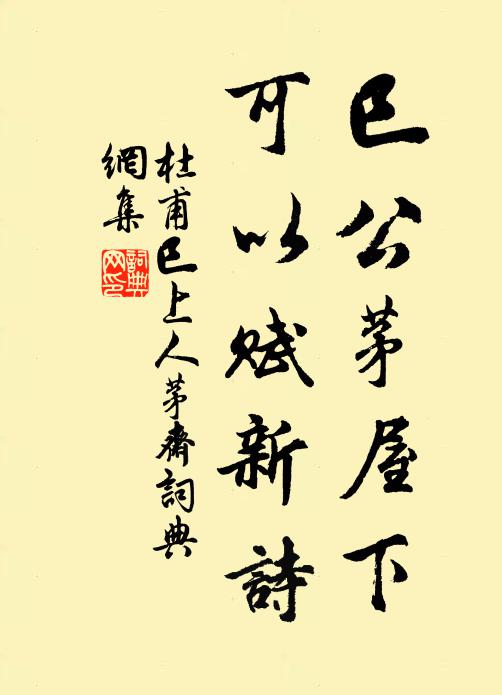 巳公茅屋下
可以赋新詩
杜甫巳上人茅齋詞典
網集
詞典
网印